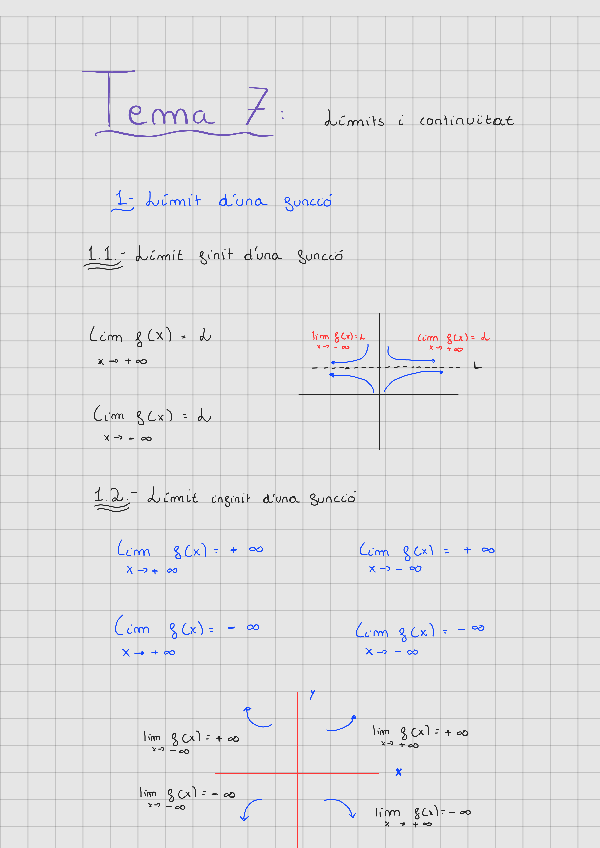 Tema 7: Límits i continuïtat
1- Límit d'una funció
1.1.- Límit finit d'una funció
lim f(x) = L
x → +∞
lim f(x) = L
x → -∞
lim f(x) = L
x → -∞
lim f(x) = L
x → +∞
L
1.2.- Límit infinit d'una funció
lim f(x) = + ∞
x → + ∞
lim f(x) = + ∞
x → - ∞
lim f(x) = - ∞
x → + ∞
lim f(x) = - ∞
x → - ∞
y
lim f(x) = + ∞
x → -∞
lim f(x) = + ∞
x → +∞
x
lim f(x) = - ∞
x → -∞
lim f(x) = - ∞
x → +∞